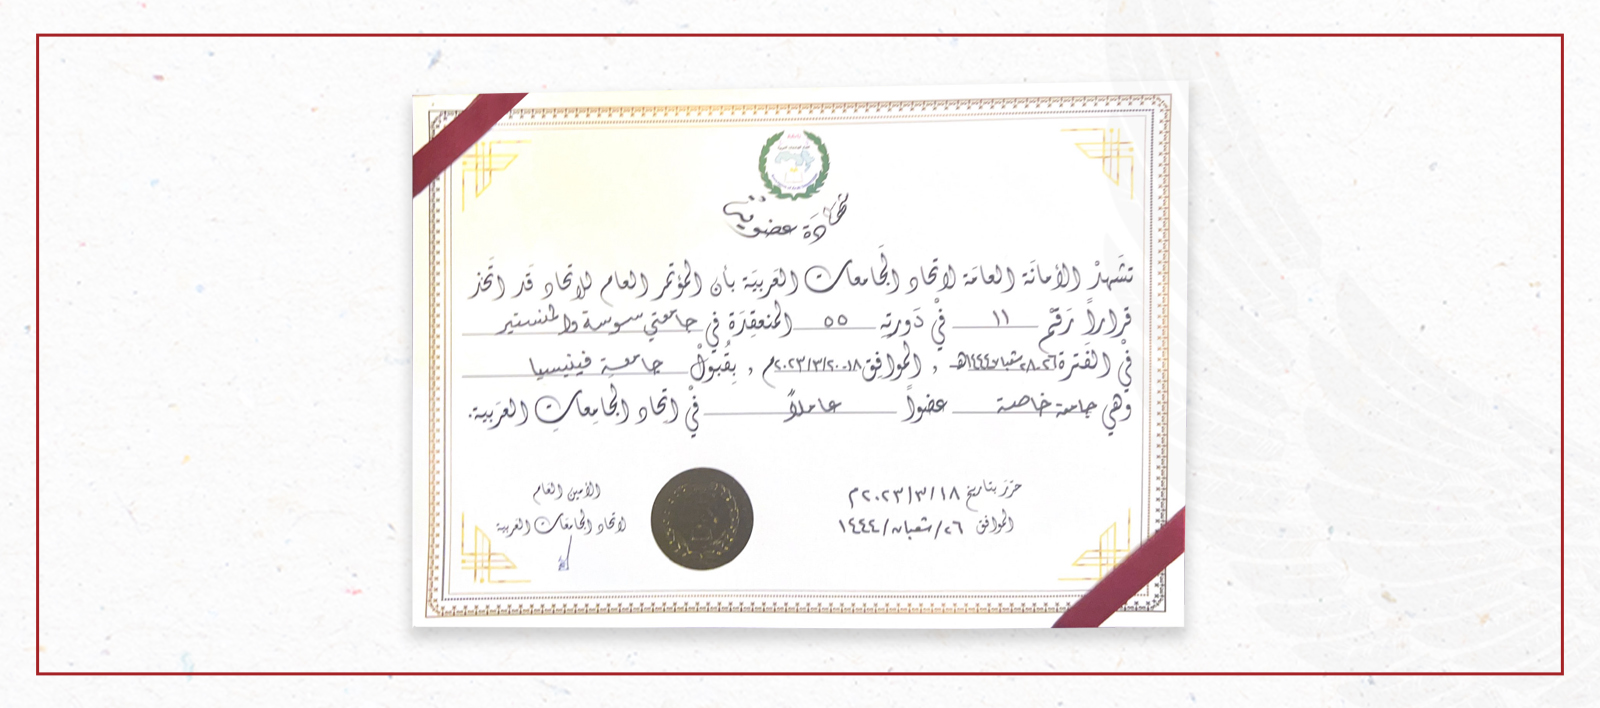 شهادة عضوية
تشهد الأمانة العامة لاتحاد الجامعات العربية بأن المؤتمر العام للاتحاد قد اتخذ
قراراً رقم ١١ في دورته ٥٥ المنعقدة في جامعتي سوسة والمنستير
في الفترة ٢٦-٢٨ شعبان ١٤٤٤هـ , الموافق ١٨-٢٠/٣/٢٠٢٣م , بقبول جامعة فينيسيا
وهي جامعة خاصة عضواً عاملاً في اتحاد الجامعات العربية.
حرر بتاريخ ١٨/٣/٢٠٢٣م
الموافق ٢٦/شعبان/١٤٤٤
الأمين العام
لاتحاد الجامعات العربية